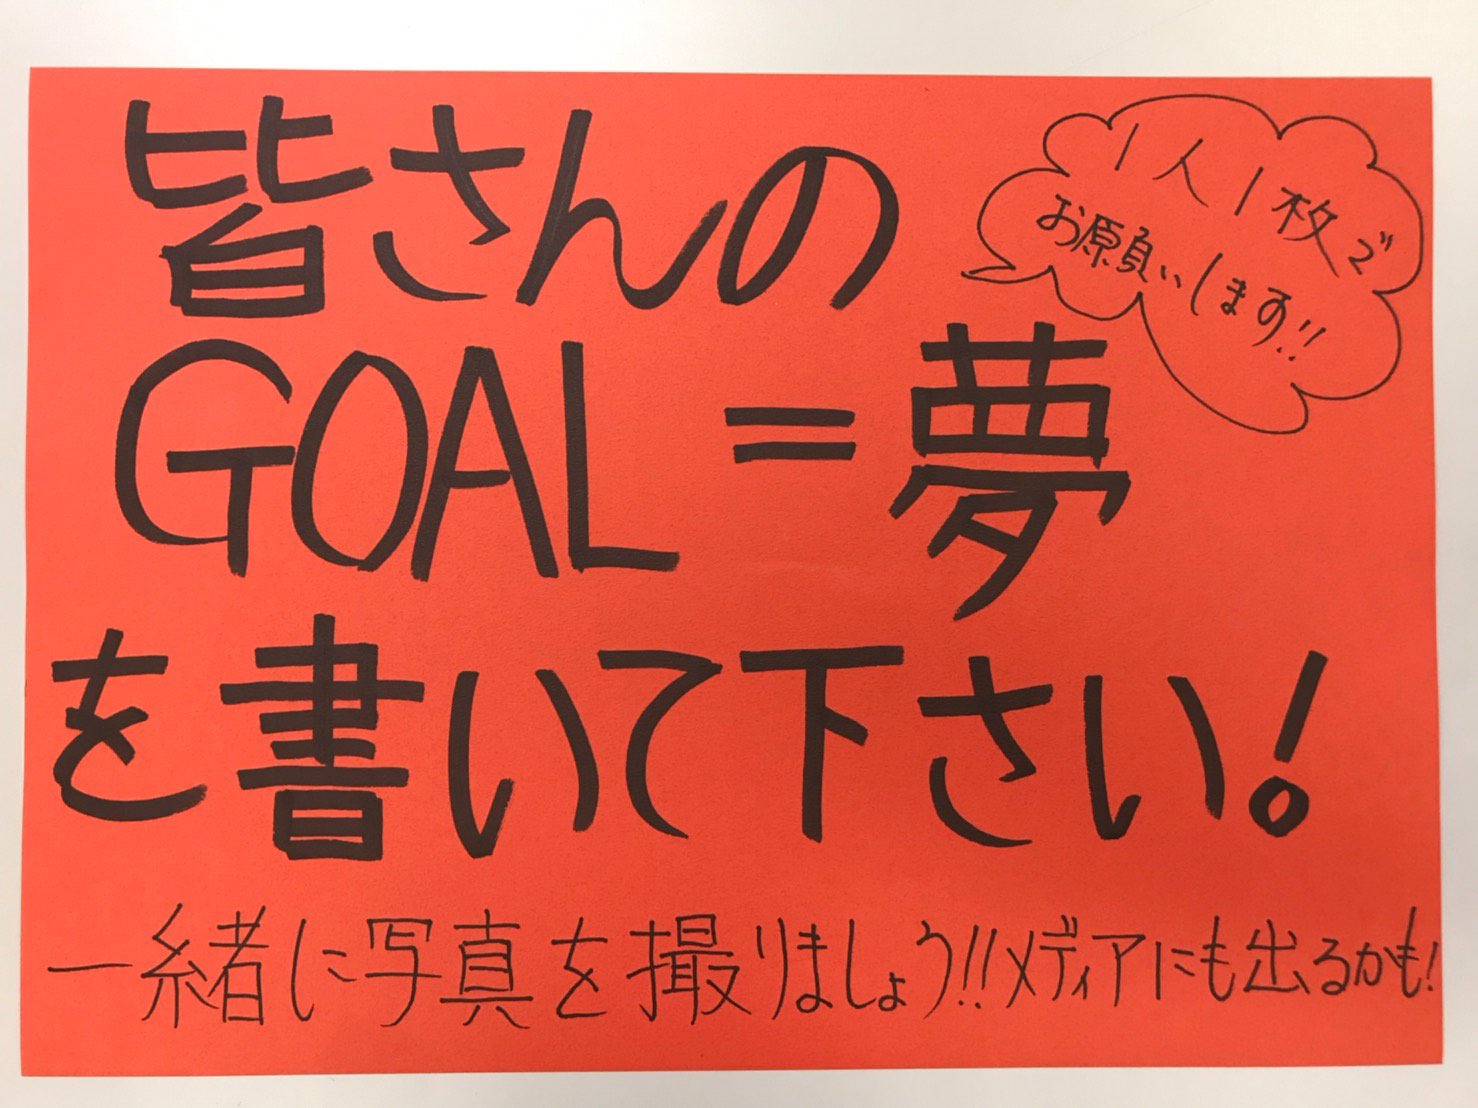 皆さんの
1人1枚で
お願いします!!
GOAL=夢
を書いて下さい!
一緒に写真を撮りましょう!!メディアにも出るかも!